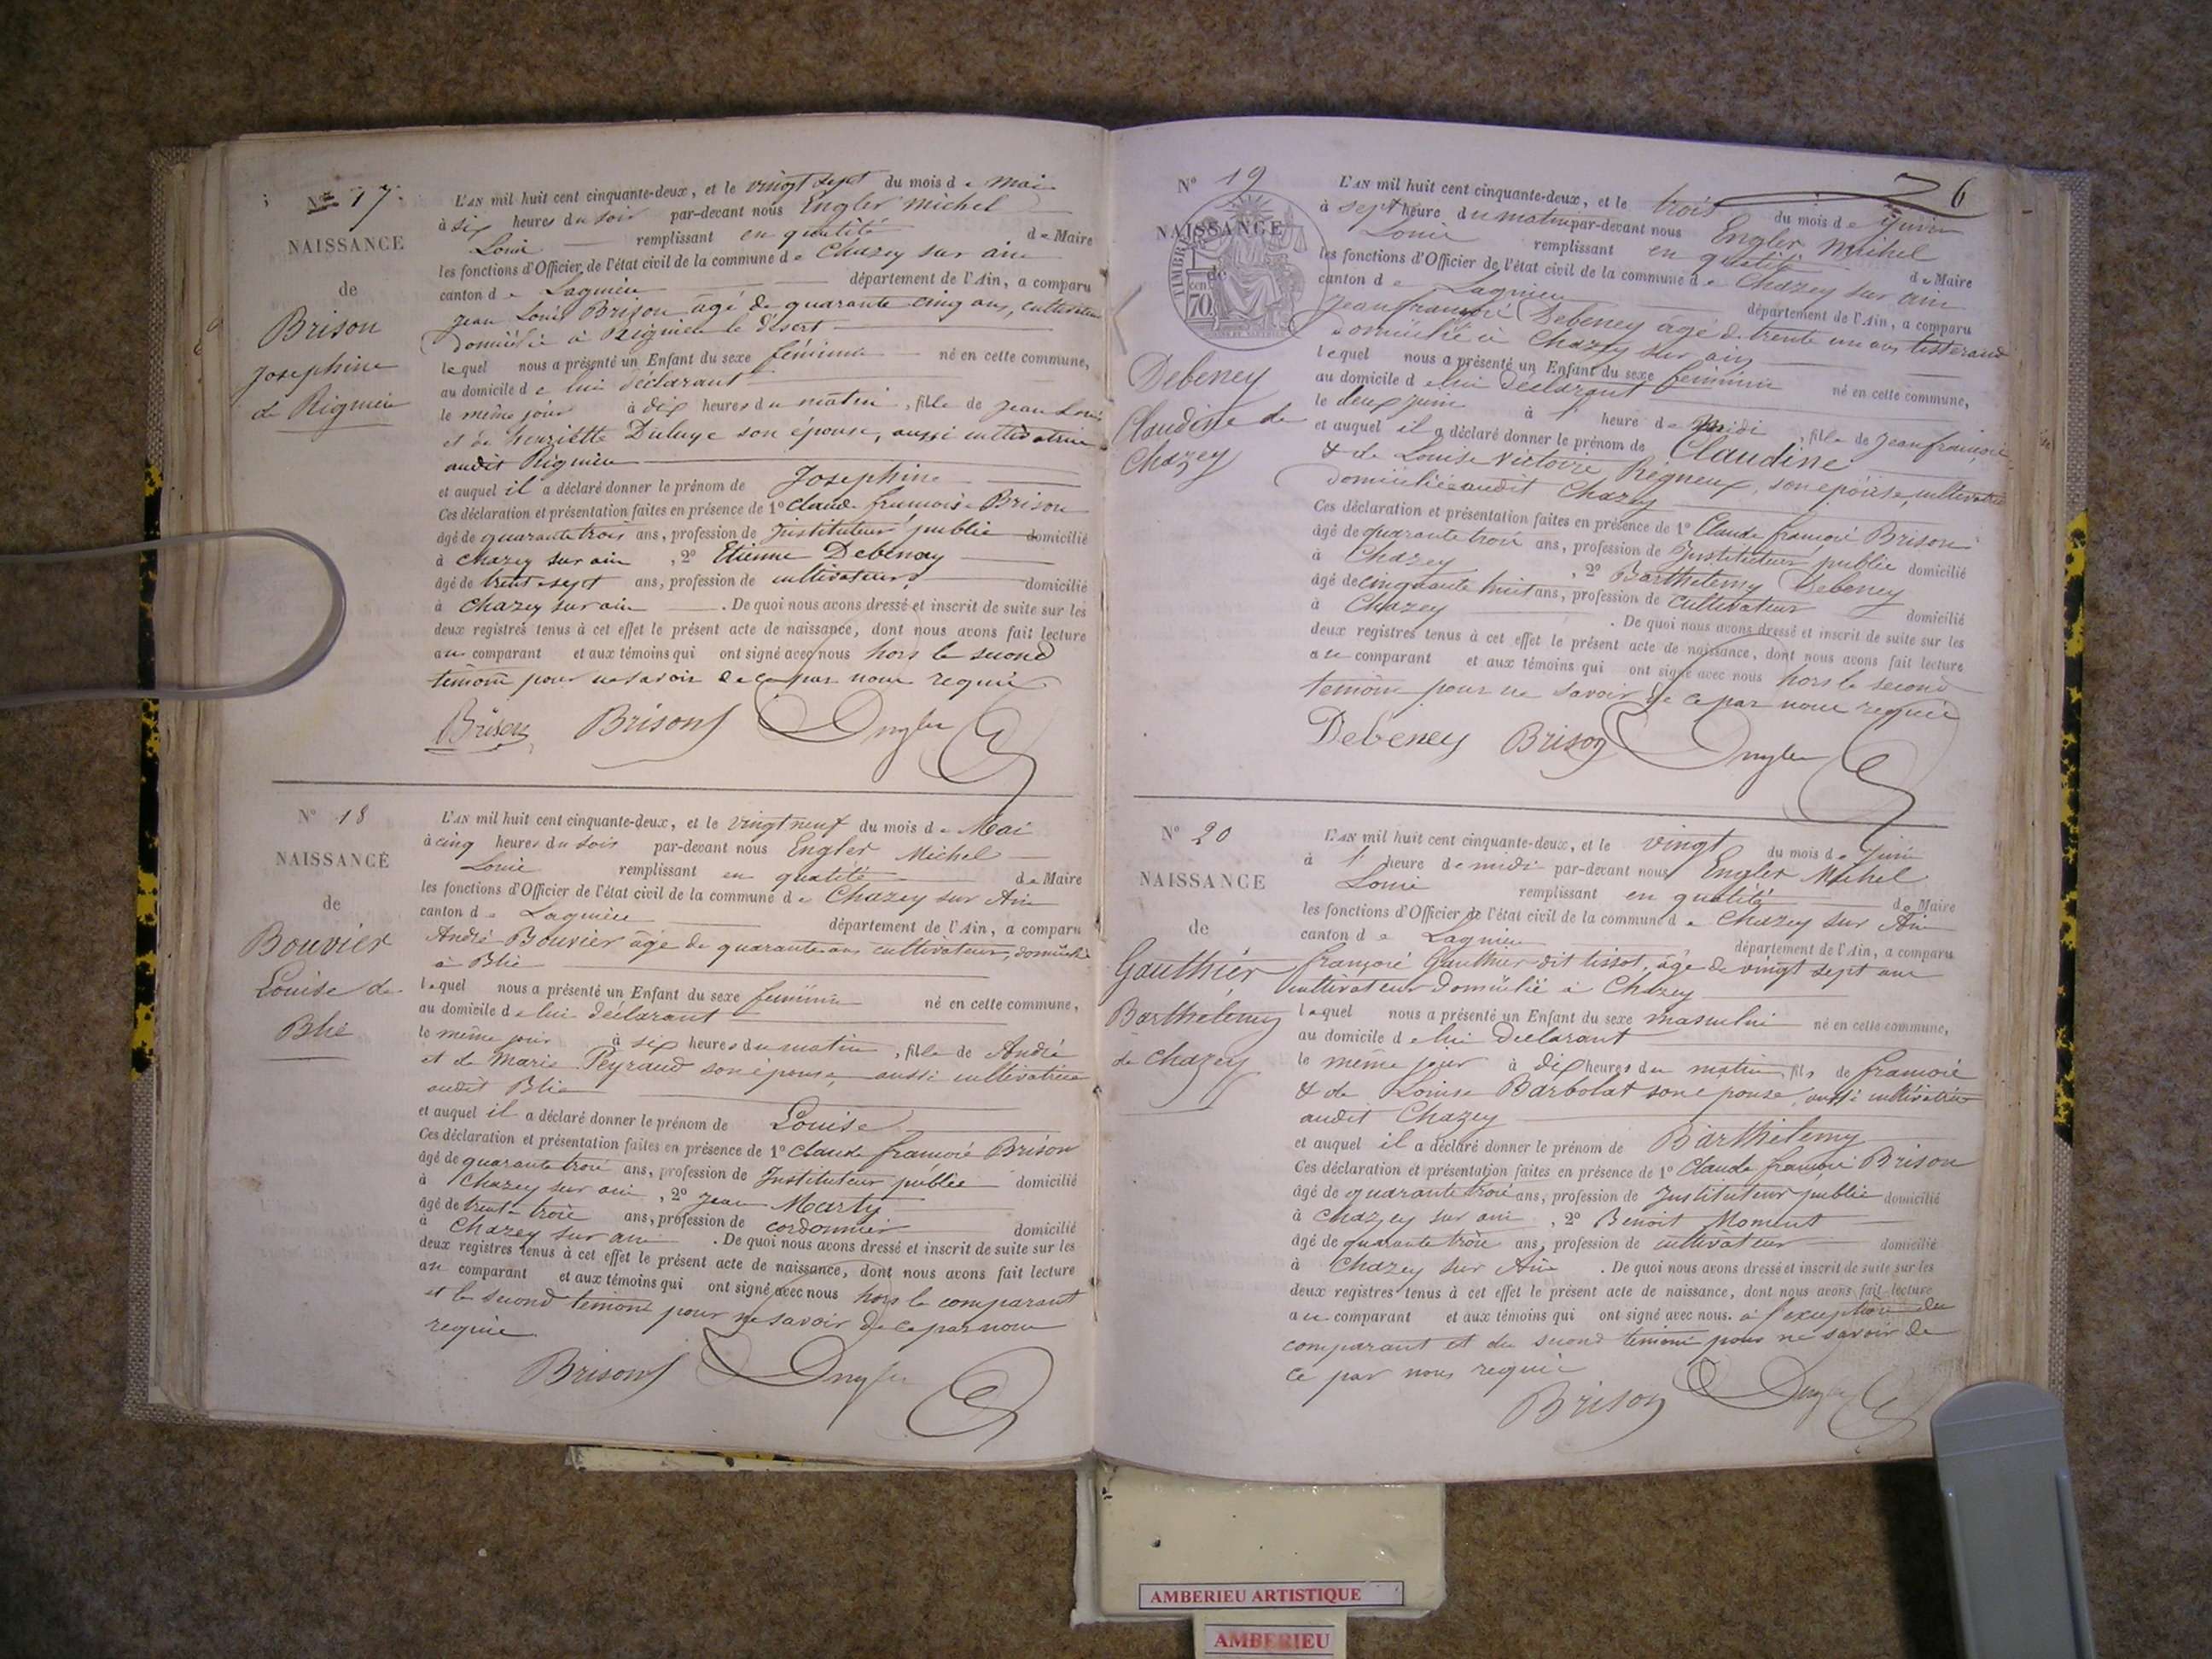 N° 17.
NAISSANCE
de
Brison
Josephine
de Rignieu
L'AN mil huit cent cinquante-deux, et le vingt sept du mois de Mai
à six heures du soir par-devant nous Engler Michel
Louis remplissant en qualité de Maire
les fonctions d'Officier de l'état civil de la commune de Chazey sur ain
canton de Lagnieu département de l'Ain, a comparu
Jean Louis Brison agé de quarante cinq ans, cultivateur
Domicilié à Rignieu le désert
lequel nous a présenté un Enfant du sexe féminin né en cette commune,
au domicile de lui déclarant
le même jour à dix heures du matin, fille de Jean Louis
et de henriette son épouse, aussi cultivatrice
audit Rignieu
et auquel il a déclaré donner le prénom de Josephine
Ces déclaration et présentation faites en présence de 1° Claude françois Brison
âgé de quarante trois ans, profession de Instituteur public domicilié
à chazey sur ain, 2° Etienne Debeney
âgé de trente sept ans, profession de cultivateur domicilié
à Chazey sur ain. De quoi nous avons dressé et inscrit de suite sur les
deux registres tenus à cet effet le présent acte de naissance, dont nous avons fait lecture
au comparant et aux témoins qui ont signé avec nous hors le second
temoin pour ne savoir de ce par nous requis
Brison Brison Engler
N° 18
NAISSANCE
de
Bouvier
Louise de
Blie
L'AN mil huit cent cinquante-deux, et le vingt neuf du mois de Mai
à cinq heures du soir par-devant nous Engler Michel
Louis remplissant en qualité de Maire
les fonctions d'Officier de l'état civil de la commune de Chazey sur Ain
canton de Lagnieu département de l'Ain, a comparu
André Bouvier âgé de quarante ans cultivateur, domicilié
à Blie
lequel nous a présenté un Enfant du sexe feminin né en cette commune,
au domicile de lui déclarant
le même jour à six heures du matin, fille de André
et de Marie Peyraud son épouse, aussi cultivatrice
audit Blie
et auquel il a déclaré donner le prénom de Louise
Ces déclaration et présentation faites en présence de 1° Claude françois Brison
âgé de quarante trois ans, profession de Instituteur public domicilié
à Chazey sur ain, 2° Jean Marty
âgé de trente trois ans, profession de cordonnier domicilié
à Chazey sur ain. De quoi nous avons dressé et inscrit de suite sur les
deux registres tenus à cet effet le présent acte de naissance, dont nous avons fait lecture
au comparant et aux témoins qui ont signé avec nous hors le comparant
et le second temoin pour ne savoir de ce par nous
requis
Brison Engler
26
N° 19
NAISSANCE
de
TIMBRE
70
Debeney
Claudine de
Chazey
L'AN mil huit cent cinquante-deux, et le trois du mois de Juin
à sept heure du matin par-devant nous Engler Michel
Louis remplissant en qualité de Maire
les fonctions d'Officier de l'état civil de la commune de Chazey sur ain
canton de Lagnieu département de l'Ain, a comparu
Jean françois Debeney âgé de trente un ans tisserand
domicilié à Chazey sur ain
lequel nous a présenté un Enfant du sexe feminin né en cette commune,
au domicile de lui déclarant
le deux juin à 1 heure de midi, fille de Jean françois
& de Louise Victoire Régneux, son épouse, cultivatrice
domiciliée audit Chazey
et auquel il a déclaré donner le prénom de Claudine
Ces déclaration et présentation faites en présence de 1° Claude françois Brison
âgé de quarante trois ans, profession de Instituteur public domicilié
à Chazey, 2° Barthelemy Debeney
âgé de cinquante huit ans, profession de cultivateur domicilié
à Chazey. De quoi nous avons dressé et inscrit de suite sur les
deux registres tenus à cet effet le présent acte de naissance, dont nous avons fait lecture
au comparant et aux témoins qui ont signé avec nous hors le second
temoin pour ne savoir de ce par nous requis
Debeney Brison Engler
N° 20
NAISSANCE
de
Gauthier
Barthélemy
de Chazey
L'AN mil huit cent cinquante-deux, et le vingt du mois de Juin
à 1 heure de midi par-devant nous Engler Michel
Louis remplissant en qualité de Maire
les fonctions d'Officier de l'état civil de la commune de Chazey sur Ain
canton de Lagnieu département de l'Ain, a comparu
françois Gauthier dit tissot, âgé de vingt sept ans
cultivateur domicilié à Chazey
lequel nous a présenté un Enfant du sexe masculin né en cette commune,
au domicile de lui déclarant
le même jour à dix heures du matin, fils de françois
& de Louise Barbolat son épouse, aussi cultivatrice
audit Chazey
et auquel il a déclaré donner le prénom de Barthélemy
Ces déclaration et présentation faites en présence de 1° Claude françois Brison
âgé de quarante trois ans, profession de Instituteur public domicilié
à chazey sur ain, 2° Benoit Moment
âgé de quarante trois ans, profession de cultivateur domicilié
à Chazey sur Ain. De quoi nous avons dressé et inscrit de suite sur les
deux registres tenus à cet effet le présent acte de naissance, dont nous avons fait lecture
au comparant et aux témoins qui ont signé avec nous. à l'exception du
comparant et du second temoin pour ne savoir de
ce par nous requis
Brison Engler
AMBERIEU ARTISTIQUE
AMBERIEU